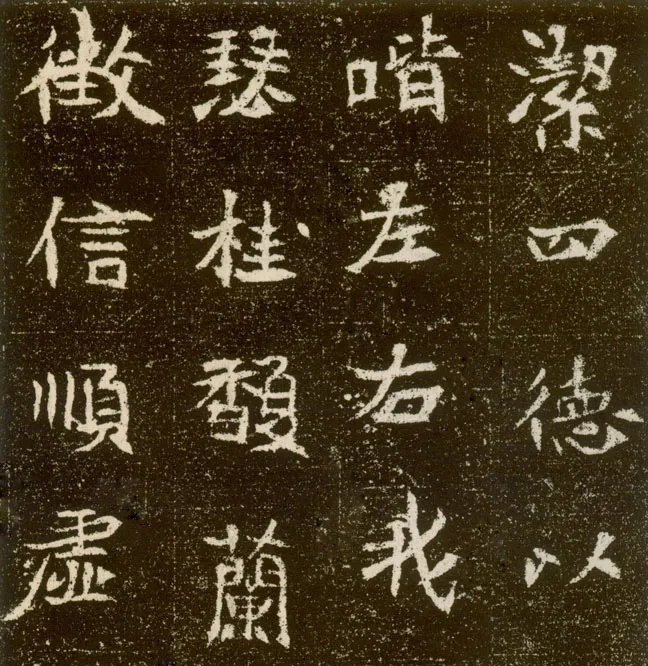 潔四德以
喈左右我
瑟桂馥蘭
徵信順虛